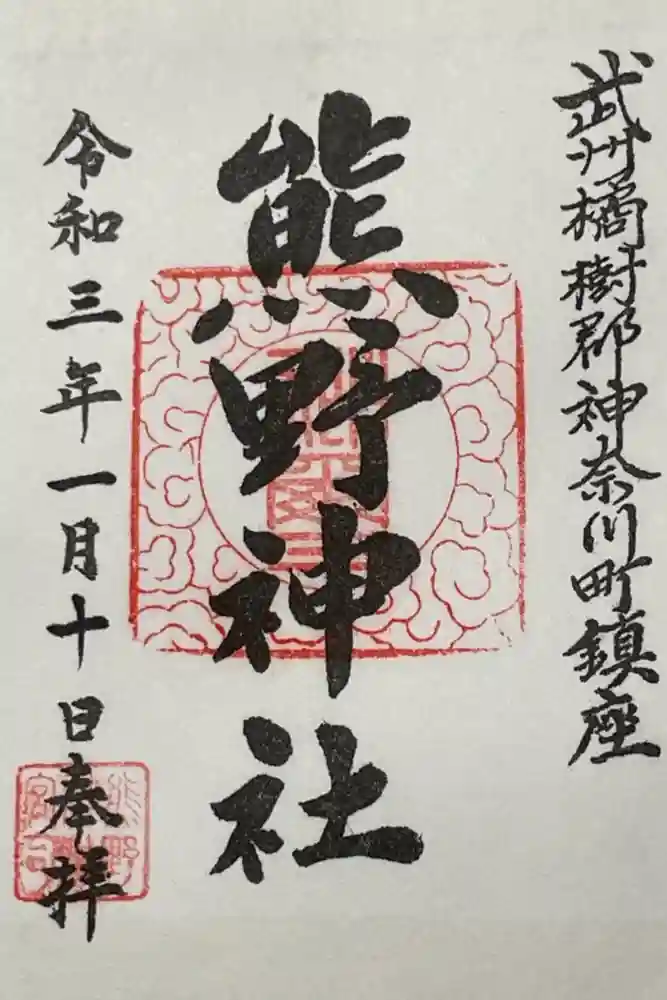 武州橘樹郡神奈川町鎮座
熊野神社
令和三年一月十日奉拝
熊野
宮司